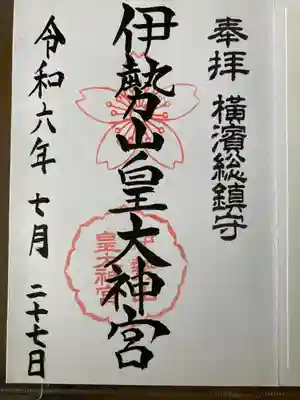 奉拝 横濱総鎮守
伊勢山皇大神宮
令和六年 七月 二十七日